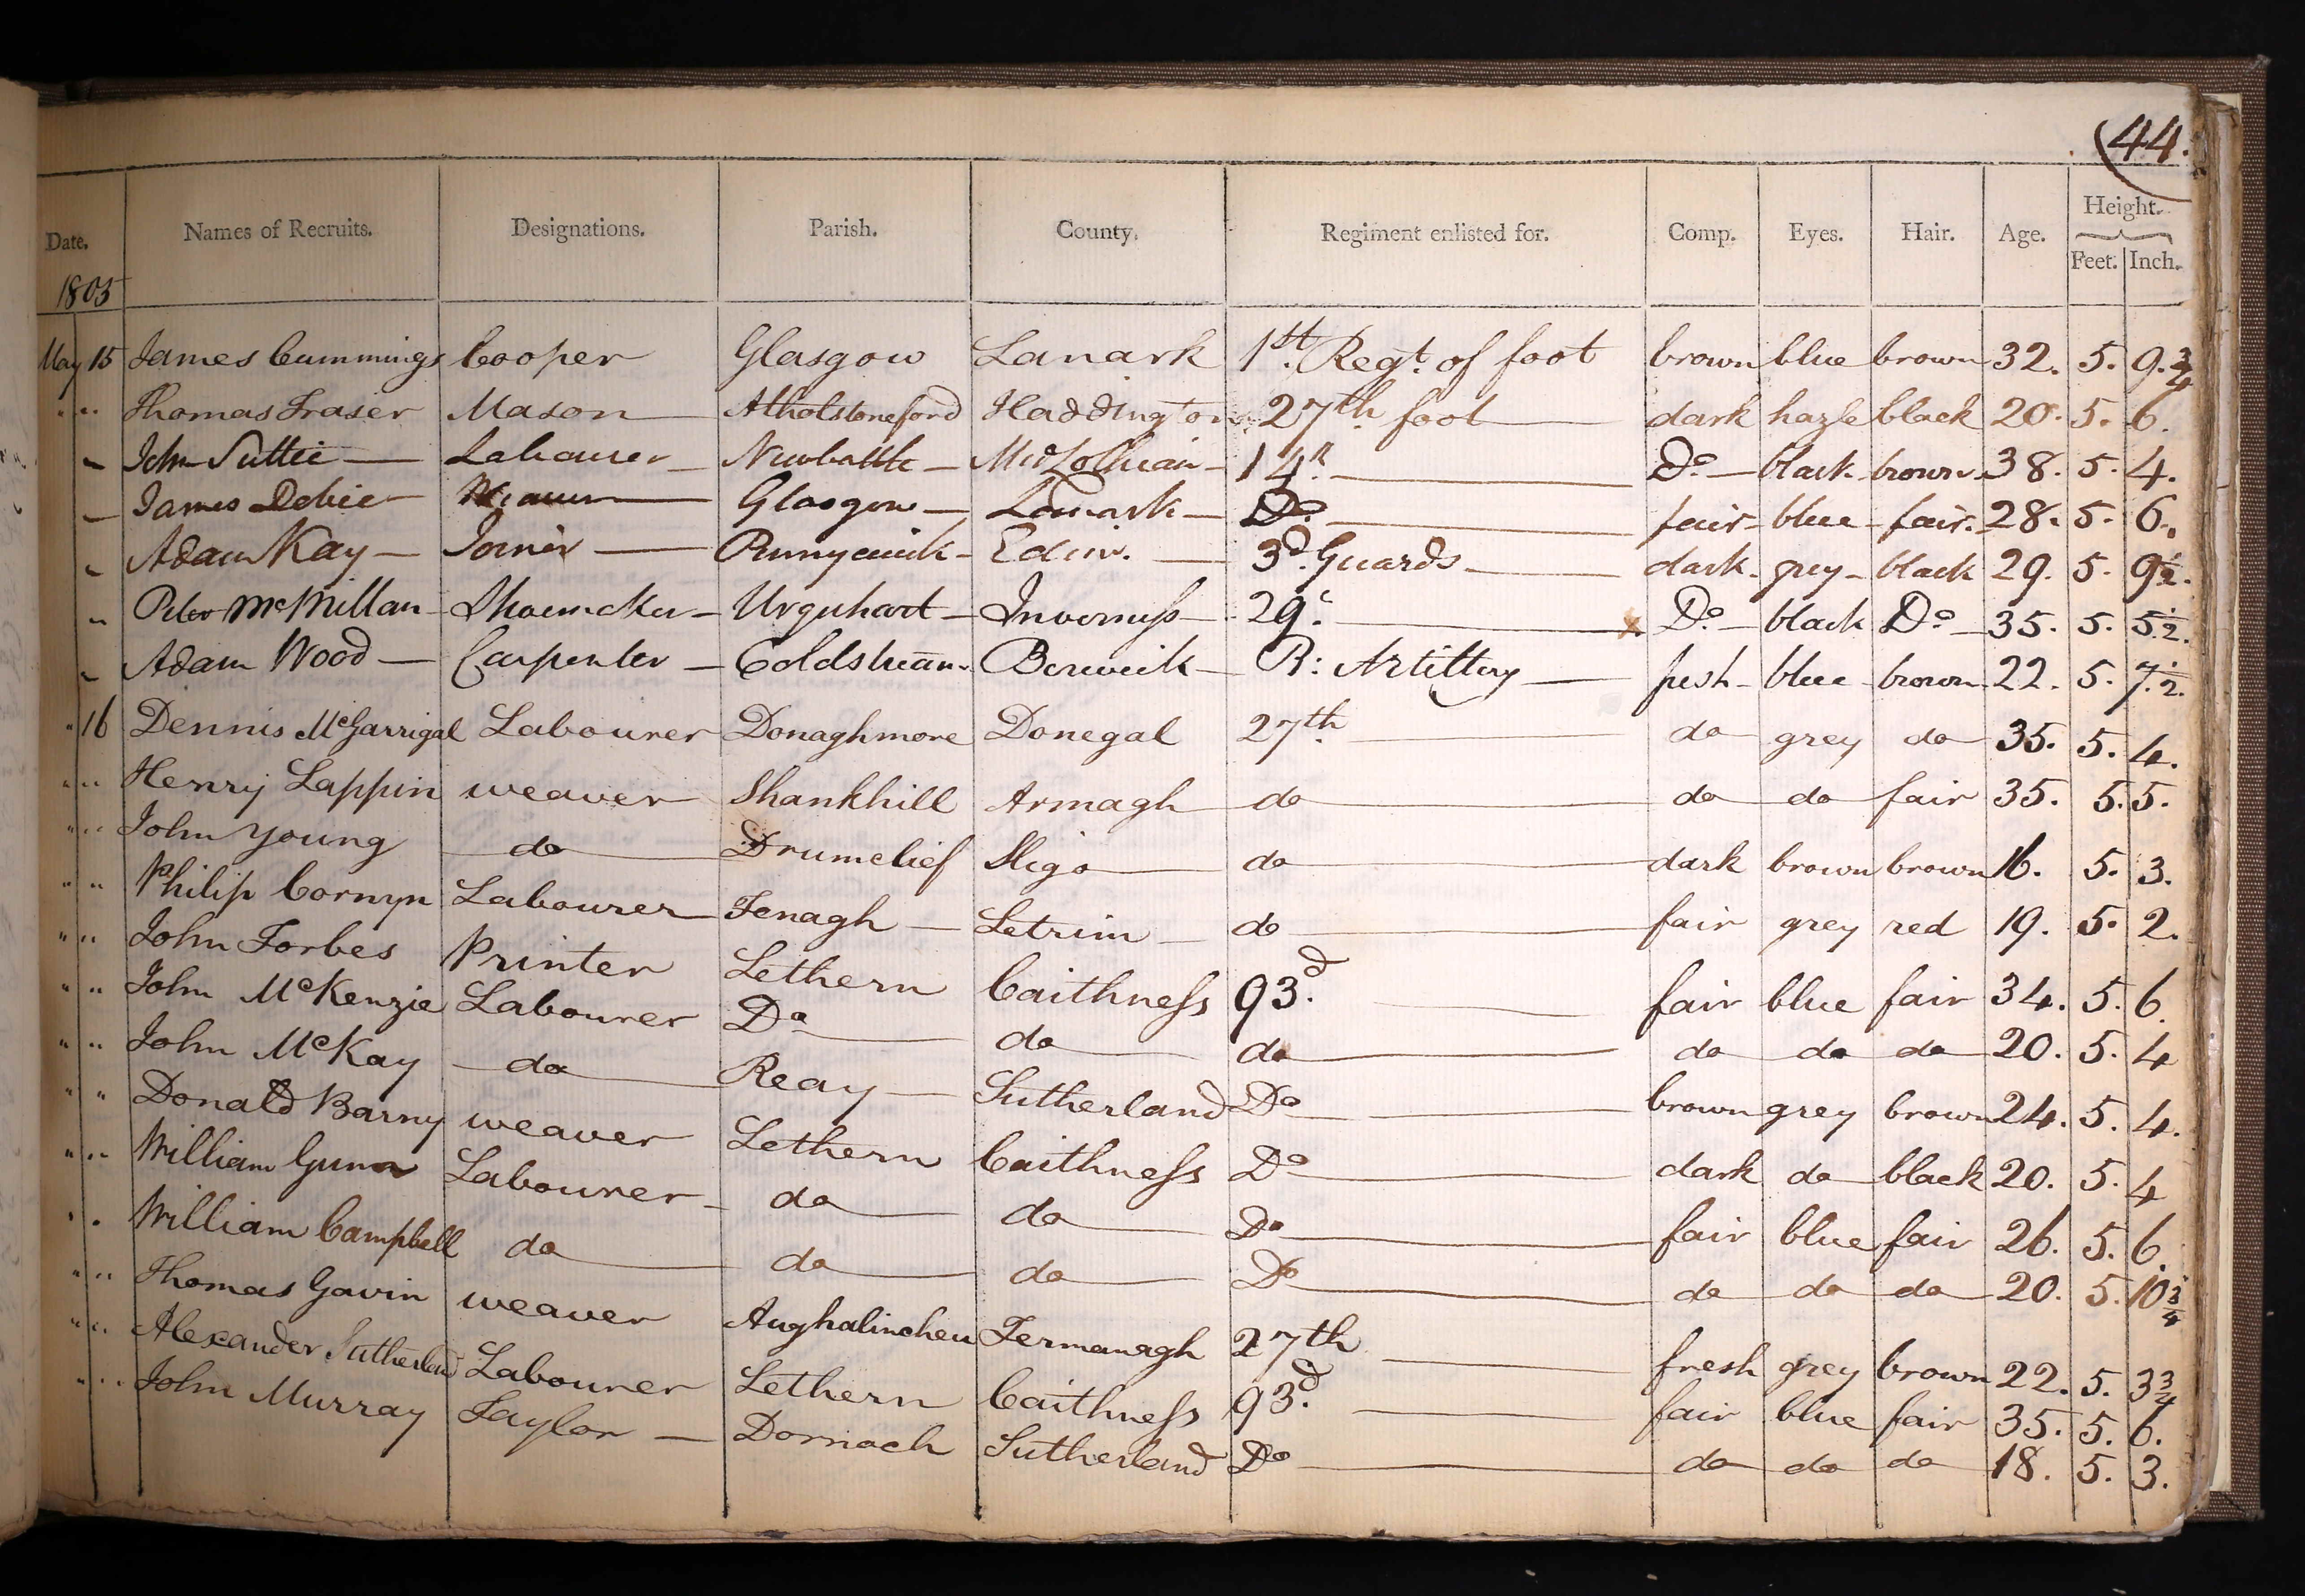 (44.
Date. Names of Recruits. Designations. Parish. County. Regiment enlisted for. Comp. Eyes. Hair. Age. Height. Feet. Inch.
1805
May 15 James Cummings Cooper Glasgow Lanark 1st. Regt. of foot brown blue brown 32. 5. 9. 3/4
" " Thomas Fraser Mason Atholstoneford Haddington 27th foot dark hazle black 20. 5. 6.
" John Suttie Labourer Newbattle Mid Lothian 14th Do black brown 38. 5. 4.
" James Dobie Weaver Glasgow Lanark Do. fair blue fair 28. 5. 6.
" Adam Kay Joiner Pennycuick Edinr. 3d. Guards dark grey black 29. 5. 9 1/2.
" Peter McMillan Shoemaker Urquhart Inverness 29th x Do black Do 35. 5. 5 1/2.
" Adam Wood Carpenter Coldstream Berwick R: Artillery fresh blue brown 22. 5. 7. 1/2.
" 16 Dennis McGarrigal Labourer Donaghmore Donegal 27th do grey do 35. 5. 4.
" " Henry Lappin weaver Shankhill Armagh do do do fair 35. 5. 5.
" " John Young do Drumclief Sligo do dark brown brown 16. 5. 3.
" " Philip Cornyn Labourer Fenagh Letrim do fair grey red 19. 5. 2.
" " John Forbes Printer Lethern Caithness 93.d fair blue fair 34. 5. 6.
" " John McKenzie Labourer Do do do do do do 20. 5. 4
" " John McKay do Reay Sutherland Do brown grey brown 24. 5. 4.
" " Donald Barny weaver Lethern Caithness Do dark do black 20. 5. 4
" " William Gunn Labourer do do Do fair blue fair 26. 5. 6.
" " William Campbell do do do Do do do do 20. 5. 10 3/4
" " Thomas Gavin weaver Aughalincheu Fermanagh 27th fresh grey brown 22. 5. 3 3/4
" " Alexander Sutherland Labourer Lethern Caithness 93.d fair blue fair 35. 5. 6.
" " John Murray Taylor Dornoch Sutherland Do do do do 18. 5. 3.